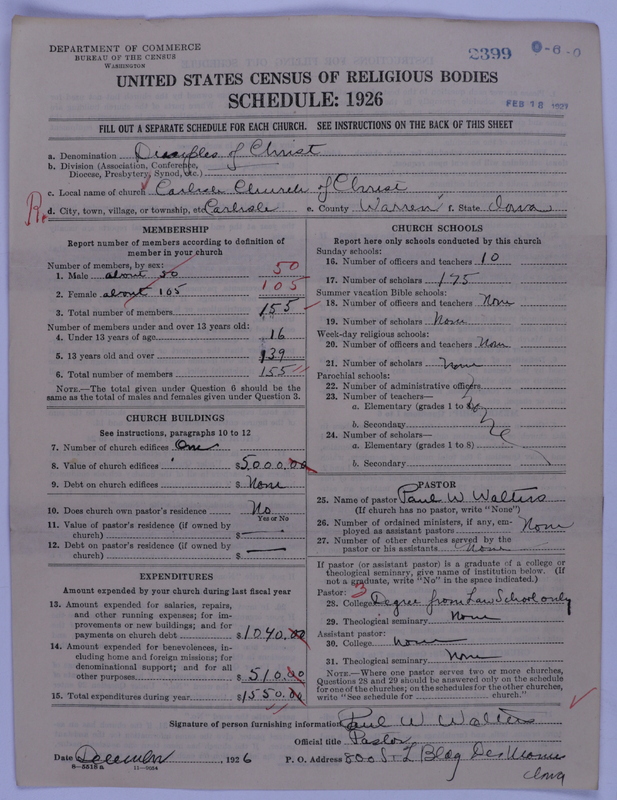 DEPARTMENT OF COMMERCE
BUREAU OF THE CENSUS
WASHINGTON
2399
0-6-0
UNITED STATES CENSUS OF RELIGIOUS BODIES
SCHEDULE: 1926
FEB 18 1927
FILL OUT A SEPARATE SCHEDULE FOR EACH CHURCH. SEE INSTRUCTIONS ON THE BACK OF THIS SHEET
a. Denomination Disciples of Christ
b. Division (Association, Conference, Diocese, Presbytery, Synod, etc.)
c. Local name of church Carlisle Church of Christ
d. City, town, village, or township, etc. Carlisle e. County Warren f. State Iowa
MEMBERSHIP
Report number of members according to definition of member in your church
Number of members, by sex:
1. Male about 50 50
2. Female about 105 105
3. Total number of members 155
Number of members under and over 13 years old:
4. Under 13 years of age 16
5. 13 years old and over 139
6. Total number of members 155
NOTE.—The total given under Question 6 should be the same as the total of males and females given under Question 3.
CHURCH BUILDINGS
See instructions, paragraphs 10 to 12
7. Number of church edifices One
8. Value of church edifices $5000.00
9. Debt on church edifices $ None
10. Does church own pastor's residence No
Yes or No
11. Value of pastor's residence (if owned by church) $ —
12. Debt on pastor's residence (if owned by church) $ —
EXPENDITURES
Amount expended by your church during last fiscal year
13. Amount expended for salaries, repairs, and other running expenses; for improvements or new buildings; and for payments on church debt $1040.00
14. Amount expended for benevolences, including home and foreign missions; for denominational support; and for all other purposes $510.00
15. Total expenditures during year $1550.00
CHURCH SCHOOLS
Report here only schools conducted by this church
Sunday schools:
16. Number of officers and teachers 10
17. Number of scholars 175
Summer vacation Bible schools:
18. Number of officers and teachers None
19. Number of scholars None
Week-day religious schools:
20. Number of officers and teachers None
21. Number of scholars None
Parochial schools:
22. Number of administrative officers
23. Number of teachers—
a. Elementary (grades 1 to 8)
b. Secondary
24. Number of scholars—
a. Elementary (grades 1 to 8)
b. Secondary
None
PASTOR
25. Name of pastor Paul W Walters
(If church has no pastor, write "None")
26. Number of ordained ministers, if any, employed as assistant pastors None
27. Number of other churches served by the pastor or his assistants None
If pastor (or assistant pastor) is a graduate of a college or theological seminary, give name of institution below. (If not a graduate, write "No" in the space indicated.)
Pastor: 3
28. College Degree from Law School only
29. Theological seminary None
Assistant pastor:
30. College None
31. Theological seminary None
NOTE.—Where one pastor serves two or more churches, Questions 28 and 29 should be answered only on the schedule for one of the churches; on the schedules for the other churches, write "See schedule for church."
Signature of person furnishing information Paul W Walters
Official title Pastor
Date December, 1926 P. O. Address 800 S+L Bldg Des Moines
Iowa